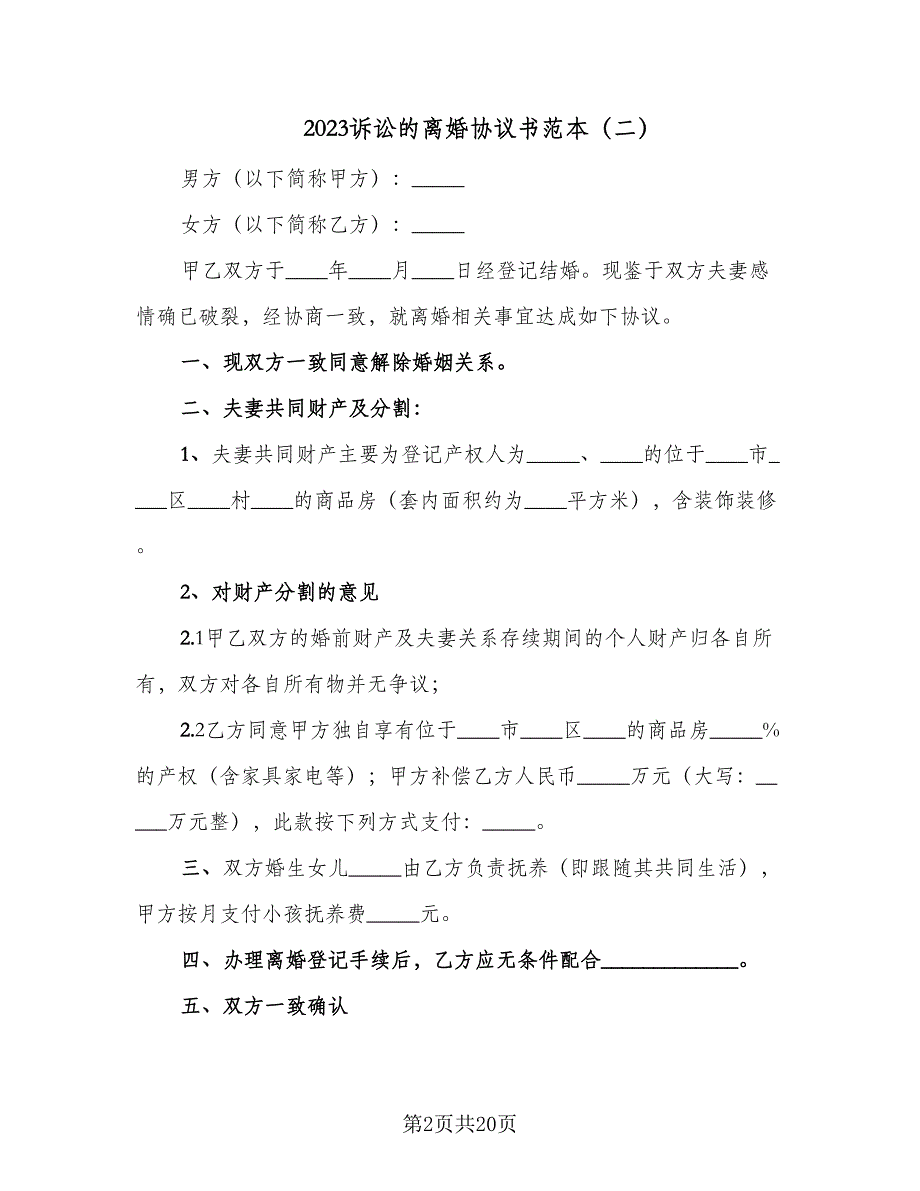 2023诉讼的离婚协议书范本（二）
男方（以下简称甲方）：_____
女方（以下简称乙方）：_____
甲乙双方于____年____月____日经登记结婚。现鉴于双方夫妻感
情确已破裂，经协商一致，就离婚相关事宜达成如下协议。
一、现双方一致同意解除婚姻关系。
二、夫妻共同财产及分割：
1、夫妻共同财产主要为登记产权人为_____、____的位于____市_
___区____村____的商品房（套内面积约为____平方米），含装饰装修
。
2、对财产分割的意见
2.1甲乙双方的婚前财产及夫妻关系存续期间的个人财产归各自所
有，双方对各自所有物并无争议；
2.2乙方同意甲方独自享有位于____市____区____的商品房_____%
的产权（含家具家电等）；甲方补偿乙方人民币_____万元（大写：__
___万元整），此款按下列方式支付：_____。
三、双方婚生女儿_____由乙方负责抚养（即跟随其共同生活），
甲方按月支付小孩抚养费_____元。
四、办理离婚登记手续后，乙方应无条件配合_____________。
五、双方一致确认
第2页共20页